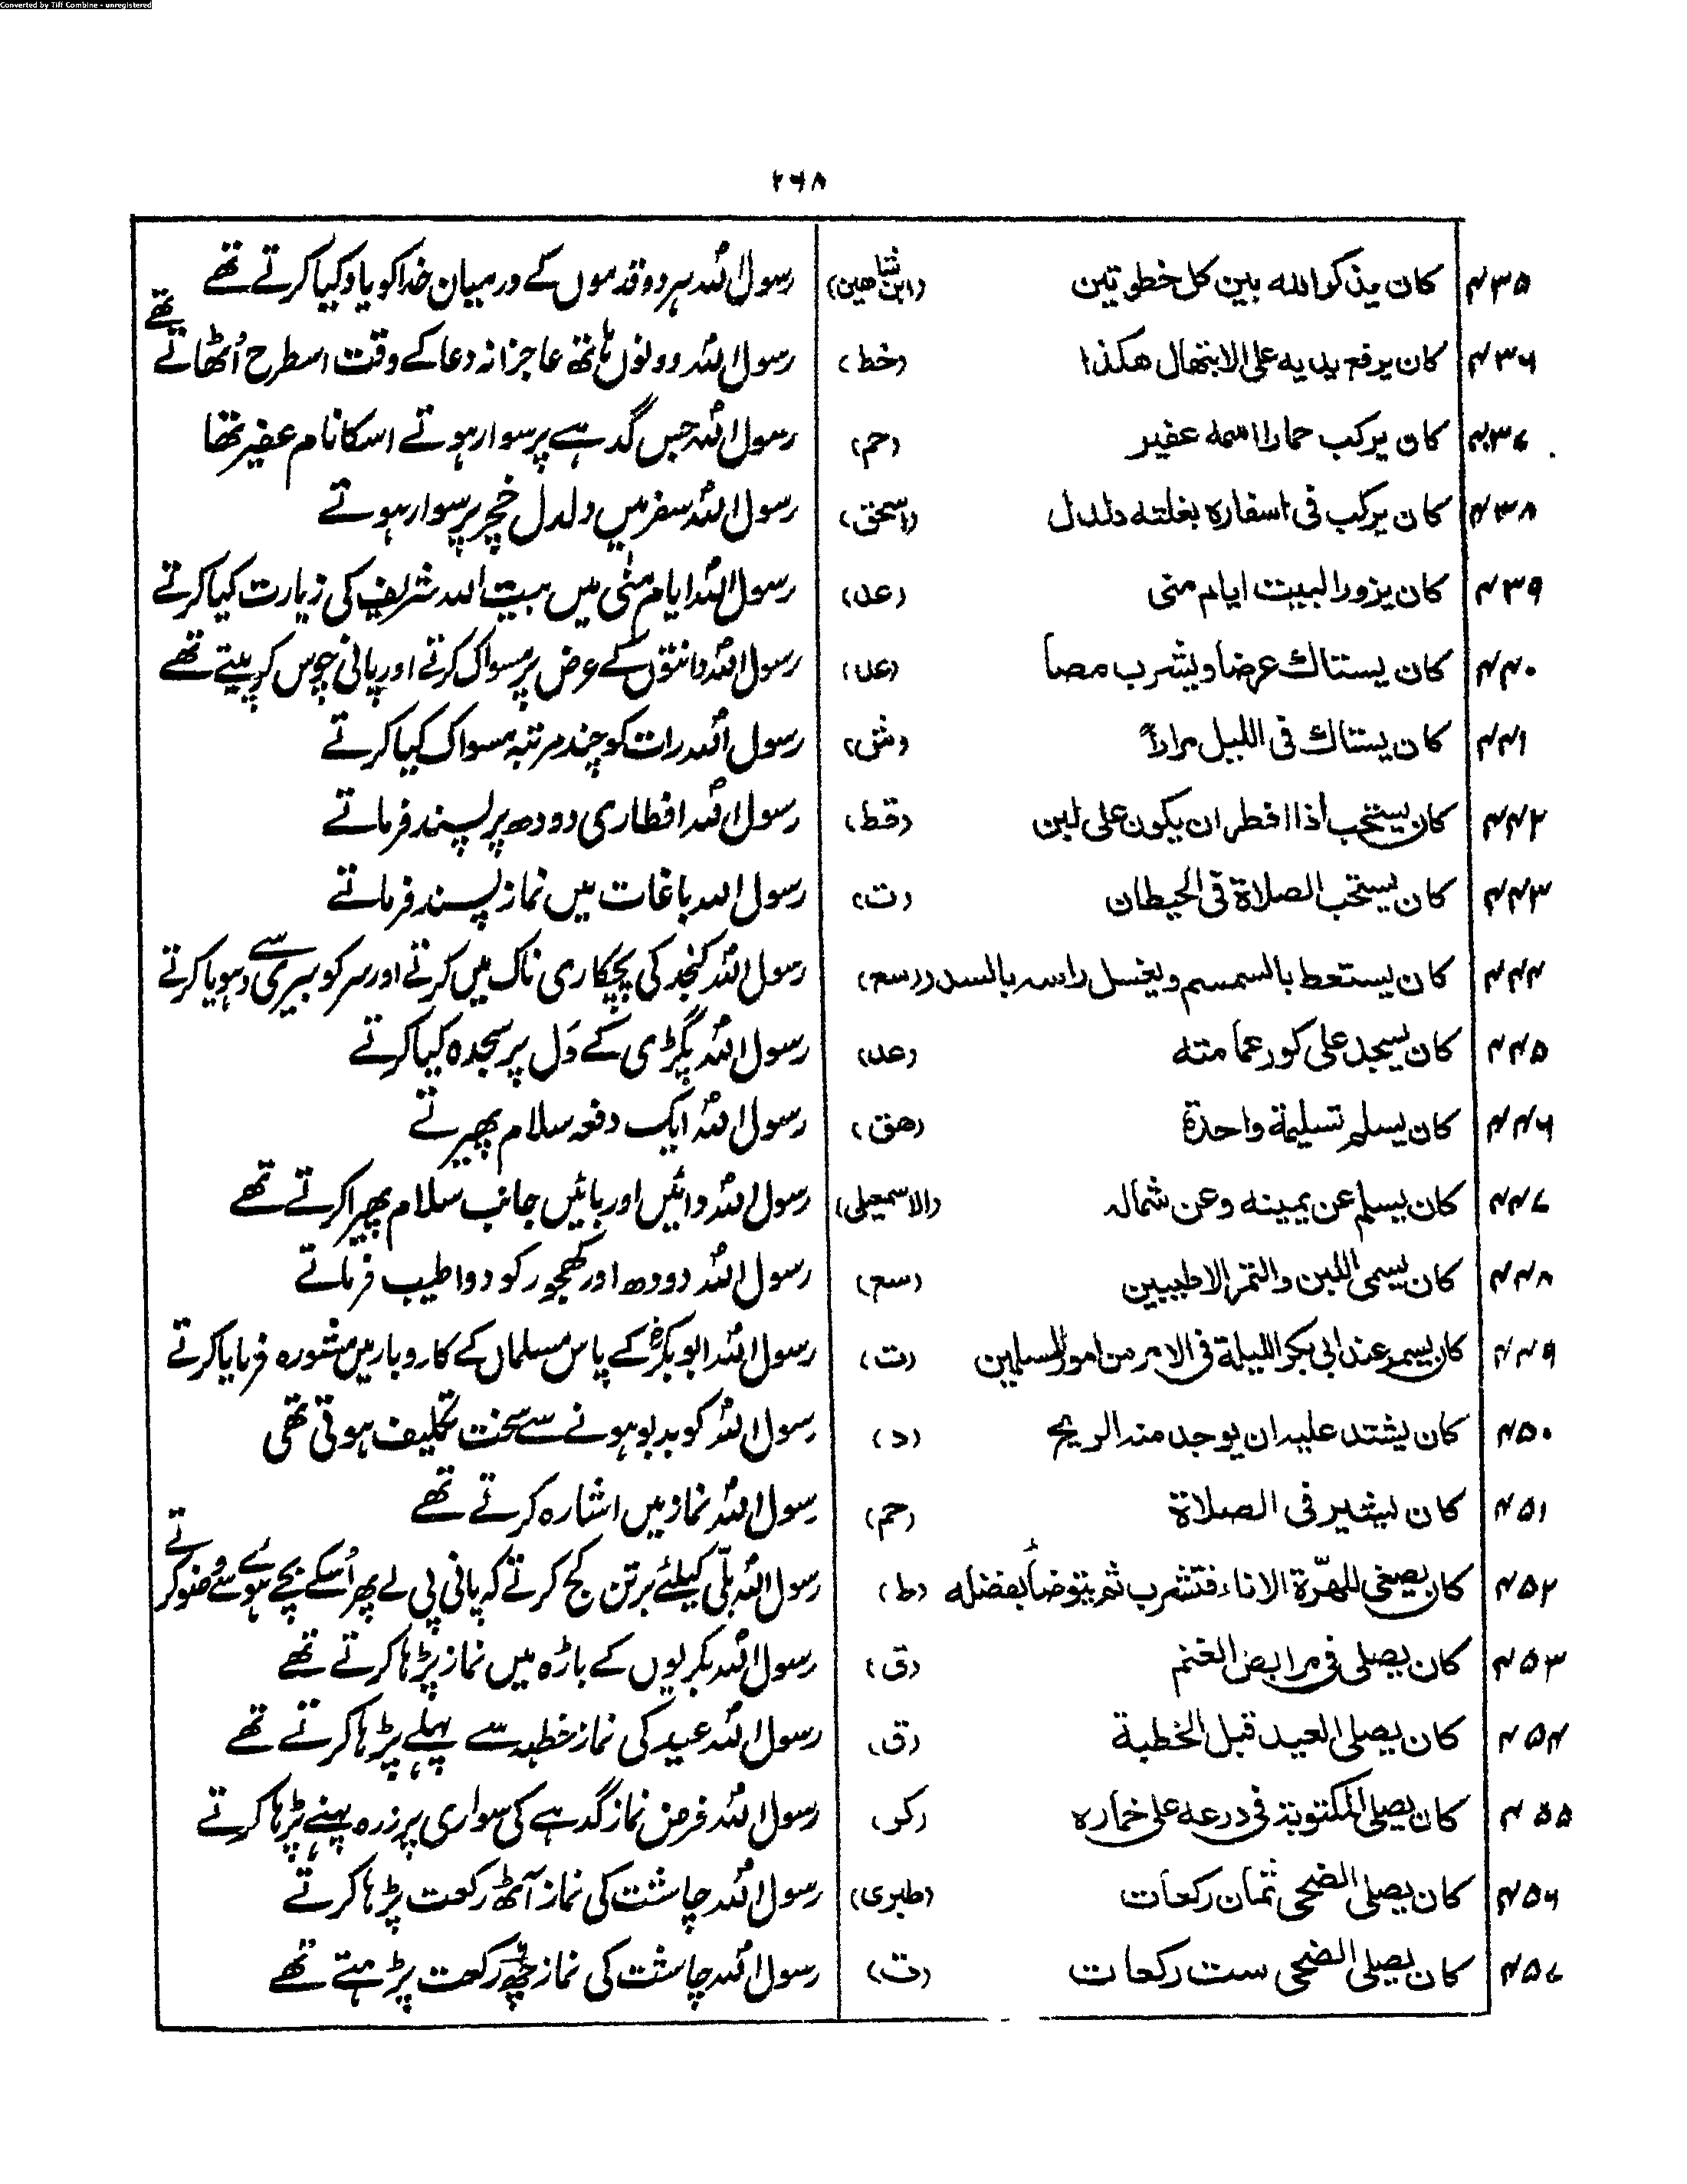 Converted by Tiff Combine - unregistered
۲۶۸
۴۳۵ کان یذکر الله بین کل خطوتین (ابن شاهین) رسول اللہ ہر دو قدموں کے درمیان خدا کو یاد کیا کرتے تھے
۴۳۶ کان یرفع یدیه علی الابتهال هکذا (خط) رسول اللہ دونوں ہاتھ عاجزانہ دعا کے وقت اسطرح اُٹھاتے تھے
۴۳۷ کان یرکب حمارا اسمه عفیر (حم) رسول اللہ جس گدہے پر سوار ہوتے اسکا نام عفیر تھا
۴۳۸ کان یرکب فی اسفاره بغلته دلدل (اسحق) رسول اللہ سفر میں دلدل خچر پر سوار ہوتے
۴۳۹ کان یزور البیت ایام منی (عد) رسول اللہ ایام منٰی میں بیت اللہ شریف کی زیارت کیا کرتے
۴۴۰ کان یستاك عرضا ویشرب مصاً (عد) رسول اللہ دانتوں کے عرض پر مسواک کرتے اور پانی چوس کر پیتے تھے
۴۴۱ کان یستاك فی اللیل مراراً (ش) رسول اللہ رات کو چند مرتبہ مسواک کیا کرتے
۴۴۲ کان یستحب اذا افطر ان یکون علی لبن (قط) رسول اللہ افطاری دودھ پر پسند فرماتے
۴۴۳ کان یستحب الصلاة فی الحیطان (ت) رسول اللہ باغات میں نماز پسند فرماتے
۴۴۴ کان یستعط بالسمسم ویغسل راسه بالسدر (سع) رسول اللہ کنجد کی پچکاری ناک میں کرتے اور سر کو بیری سے دہویا کرتے
۴۴۵ کان یسجد علی کور عمامته (عد) رسول اللہ پگڑی کے وَل پر سجدہ کیا کرتے
۴۴۶ کان یسلم تسلیمة واحدة (هق) رسول اللہ ایک دفعہ سلام پھیرتے
۴۴۷ کان یسلم عن یمینه وعن شماله (الاسمعیلی) رسول اللہ دائیں اور بائیں جانب سلام پھیرا کرتے تھے
۴۴۸ کان یسمی اللبن والتمر الاطیبین (سع) رسول اللہ دودھ اور کھجور کو دو اطیب فرماتے
۴۴۹ کان یسمر عند ابی بکر اللیلة فی الامر من امور المسلمین (ت) رسول اللہ ابوبکرؓ کے پاس مسلماں کے کاروبار میں مشورہ فرمایا کرتے
۴۵۰ کان یشتد علیه ان یوجد منه الریح (د) رسول اللہ کو بدبو ہونے سے سخت تکلیف ہوتی تھی
۴۵۱ کان یشیر فی الصلاة (حم) رسول اللہ نماز میں اشارہ کرتے تھے
۴۵۲ کان یصغی للهرّة الاناء فتشرب ثم یتوضأ بفضله (ط) رسول اللہ بلّی کیلئے برتن کج کرتے کہ پانی پی لے پھر اُسکے بچے ہوئے سے وضو کرتے
۴۵۳ کان یصلی فی مرابض الغنم (ق) رسول اللہ بکریوں کے باڑہ میں نماز پڑہا کرتے تھے
۴۵۴ کان یصلی العید قبل الخطبة (ق) رسول اللہ عید کی نماز خطبہ سے پہلے پڑہا کرتے تھے
۴۵۵ کان یصلی المکتوبة فی درعه علی خماره (کر) رسول اللہ فرض نماز گدہے کی سواری پر زرہ پہنے پڑہا کرتے
۴۵۶ کان یصلی الضحی ثمان رکعات (طبری) رسول اللہ چاشت کی نماز آٹھ رکعت پڑہا کرتے
۴۵۷ کان یصلی الضحی ست رکعات (ت) رسول اللہ چاشت کی نماز چھ رکعت پڑہتے تھے